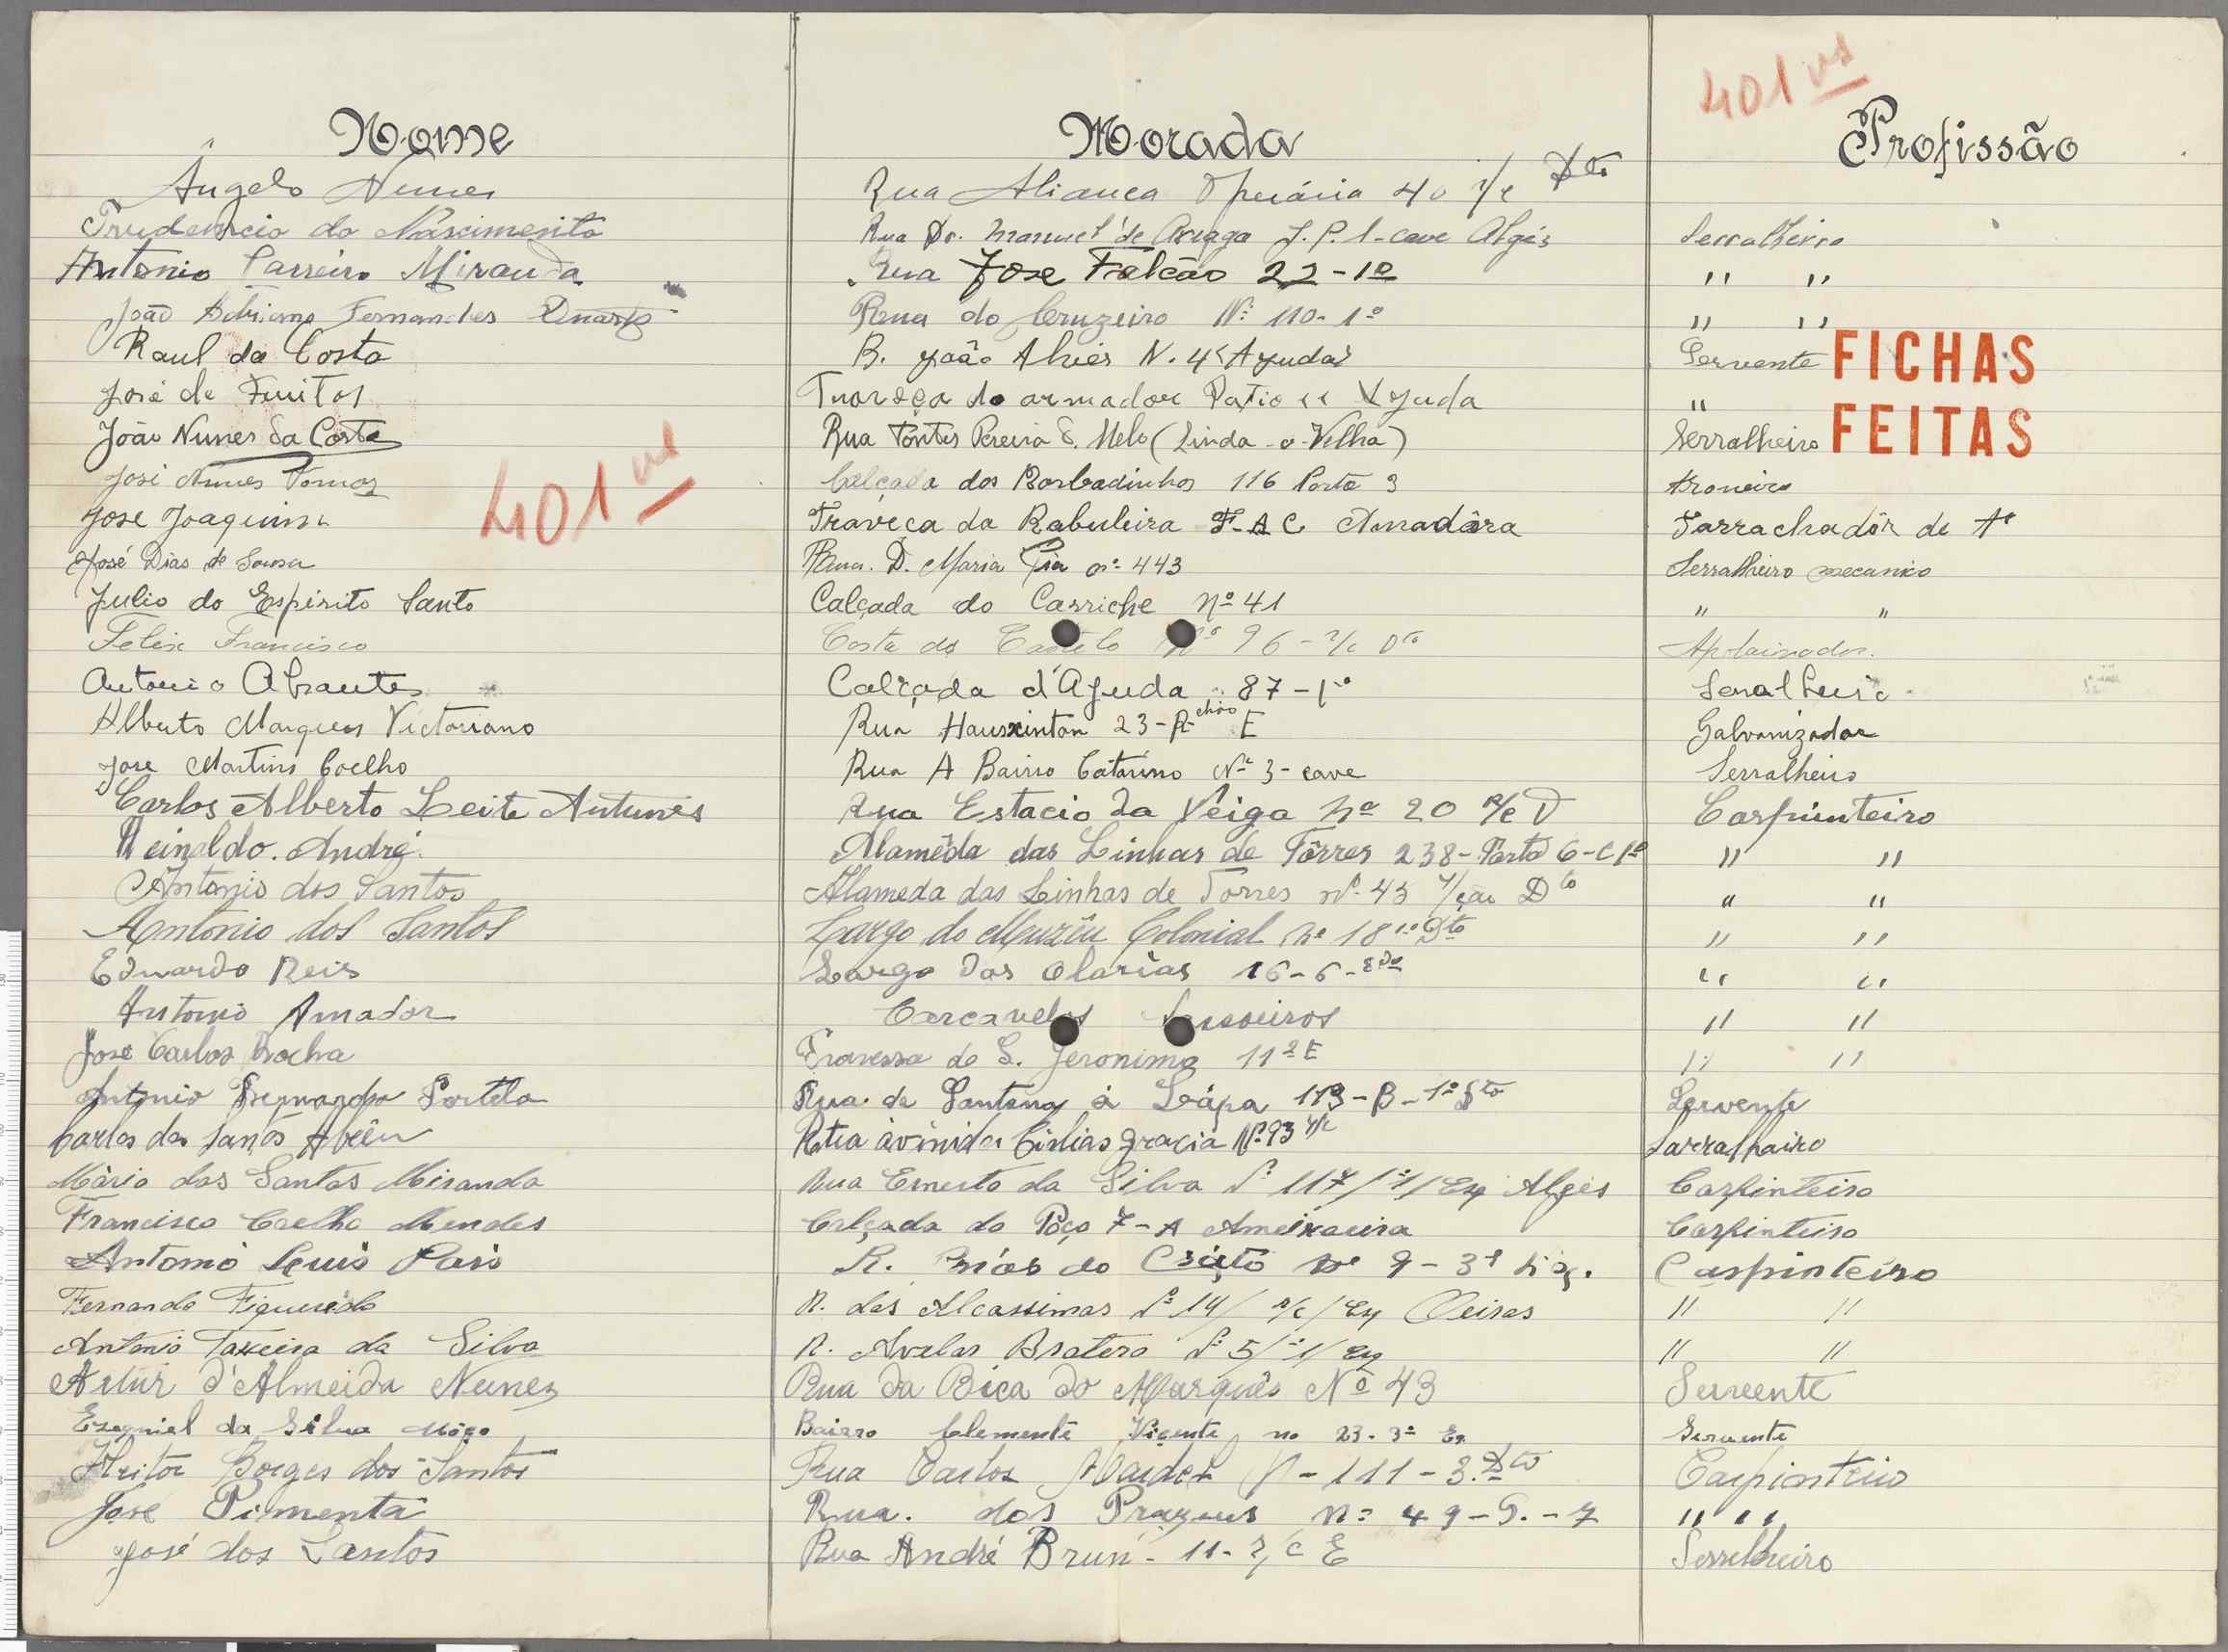 401 vs
Nome Morada Profissão
Ângelo Nunes Rua Aliança Operária 40 r/c Dto
Prudencio do Nascimento Rua Dr. Manuel de Arriaga J. P. 1-cave Algés Serralheiro
Antonio Parreira Miranda Rua Jose Falcão 22-1º " "
João Adriano Fernandes Duarte Rua do Cruzeiro Nº 110-1º " "
Raul da Costa R. João Alves N. 4 (Ajuda) Servente FICHAS
José de Freitas do armador Patio Ajuda "
João Nunes da Costa Rua Fontes Pereira d. Melo (Linda-a-Velha) Serralheiro FEITAS
José Nunes Tomaz Calçada dos Barbadinhos 116 Porta 3
401 vs
Jose Joaquim Traveça da Rabuleira F-A C Amadôra Tarrachadôr de
José Dias de Sousa Rua. D. Maria Pia nº 443 Serralheiro mecanico
Julio do Espirito Santo Calçada do Carriche nº 41 " "
Felix Francisco Costa do Castelo Nº 96-r/c Dto Aplainador.
Antonio Abrantes Calçada d'Ajuda 87-1º Serralheiro
Alberto Marques Victoriano Rua 23-R-chão E Galvanizador
Jose Martins Coelho Rua A Bairro Catarino Nº 3-cave Serralheiro
Carlos Alberto Leite Antunes Rua Estacio da Veiga nº 20 R/c D Carpinteiro
Reinaldo. André. Alamêda das Linhas de Tôrres 238-Porta 6-C 1º " "
Antonio dos Santos Alameda das Linhas de Torres nº 45 Dto " "
Antonio dos Santos Largo do Muzêu Colonial nº 18 1º Dto " "
Eduardo Reis Largo das Olarias 16-6- " "
Antonio Amador Carcavelos Sassoeiros " "
José Carlos Rocha Travessa de S. Jeronimo 11 2º E " "
Antonio Bernardo Portela Rua. de Santana á Lápa 113-B-1º Dto Servente
Carlos dos Santos Abrêu Rua avinida gracia Nº 93 r/c Sarralhairo
Mário dos Santos Miranda Rua Ernesto da Silva Nº 117/1º/Esq Algés Carpinteiro
Francisco Coelho Mendes Calçada do Poço 7-A Ameixoeira Carpinteiro
Antonio Luis Pais R. do Crato Nº 9-3º Carpinteiro
Fernando Figueiredo R. das Alcassimas Nº 14/ r/c/Esq Oeiras " "
Antonio Taxeira da Silva R. Avelar Brotero Nº 5/1º/Esq " "
Artur d'Almeida Nunes Rua da Bica do Marquês Nº 43 Servente
Ezequiel da Silva Môço Bairro Clemente Viçente no 23-3º Es. Servente
Heitor Borges dos Santos Rua Carlos Mardel N-111-3.º Dto Carpinteiro
Jose Pimenta Rua. dos Prazeres nº 49-S.-7 " "
José dos Santos Rua André Brun-11-r/c E Serralheiro